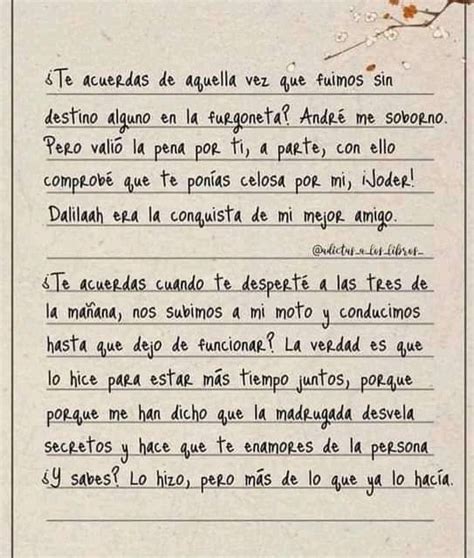 ¿Te acuerdas de aquella vez que fuimos sin
destino alguno en la furgoneta? André me soborno.
Pero valió la pena por ti, a parte, con ello
comprobé que te ponías celosa por mi, ¡Joder!
Dalilaah era la conquista de mi mejor amigo.
@adictas_a_los_libros_
¿Te acuerdas cuando te desperté a las tres de
la mañana, nos subimos a mi moto y conducimos
hasta que dejo de funcionar? La verdad es que
lo hice para estar más tiempo juntos, porque
porque me han dicho que la madrugada desvela
secretos y hace que te enamores de la persona
¿Y sabes? Lo hizo, pero más de lo que ya lo hacía.